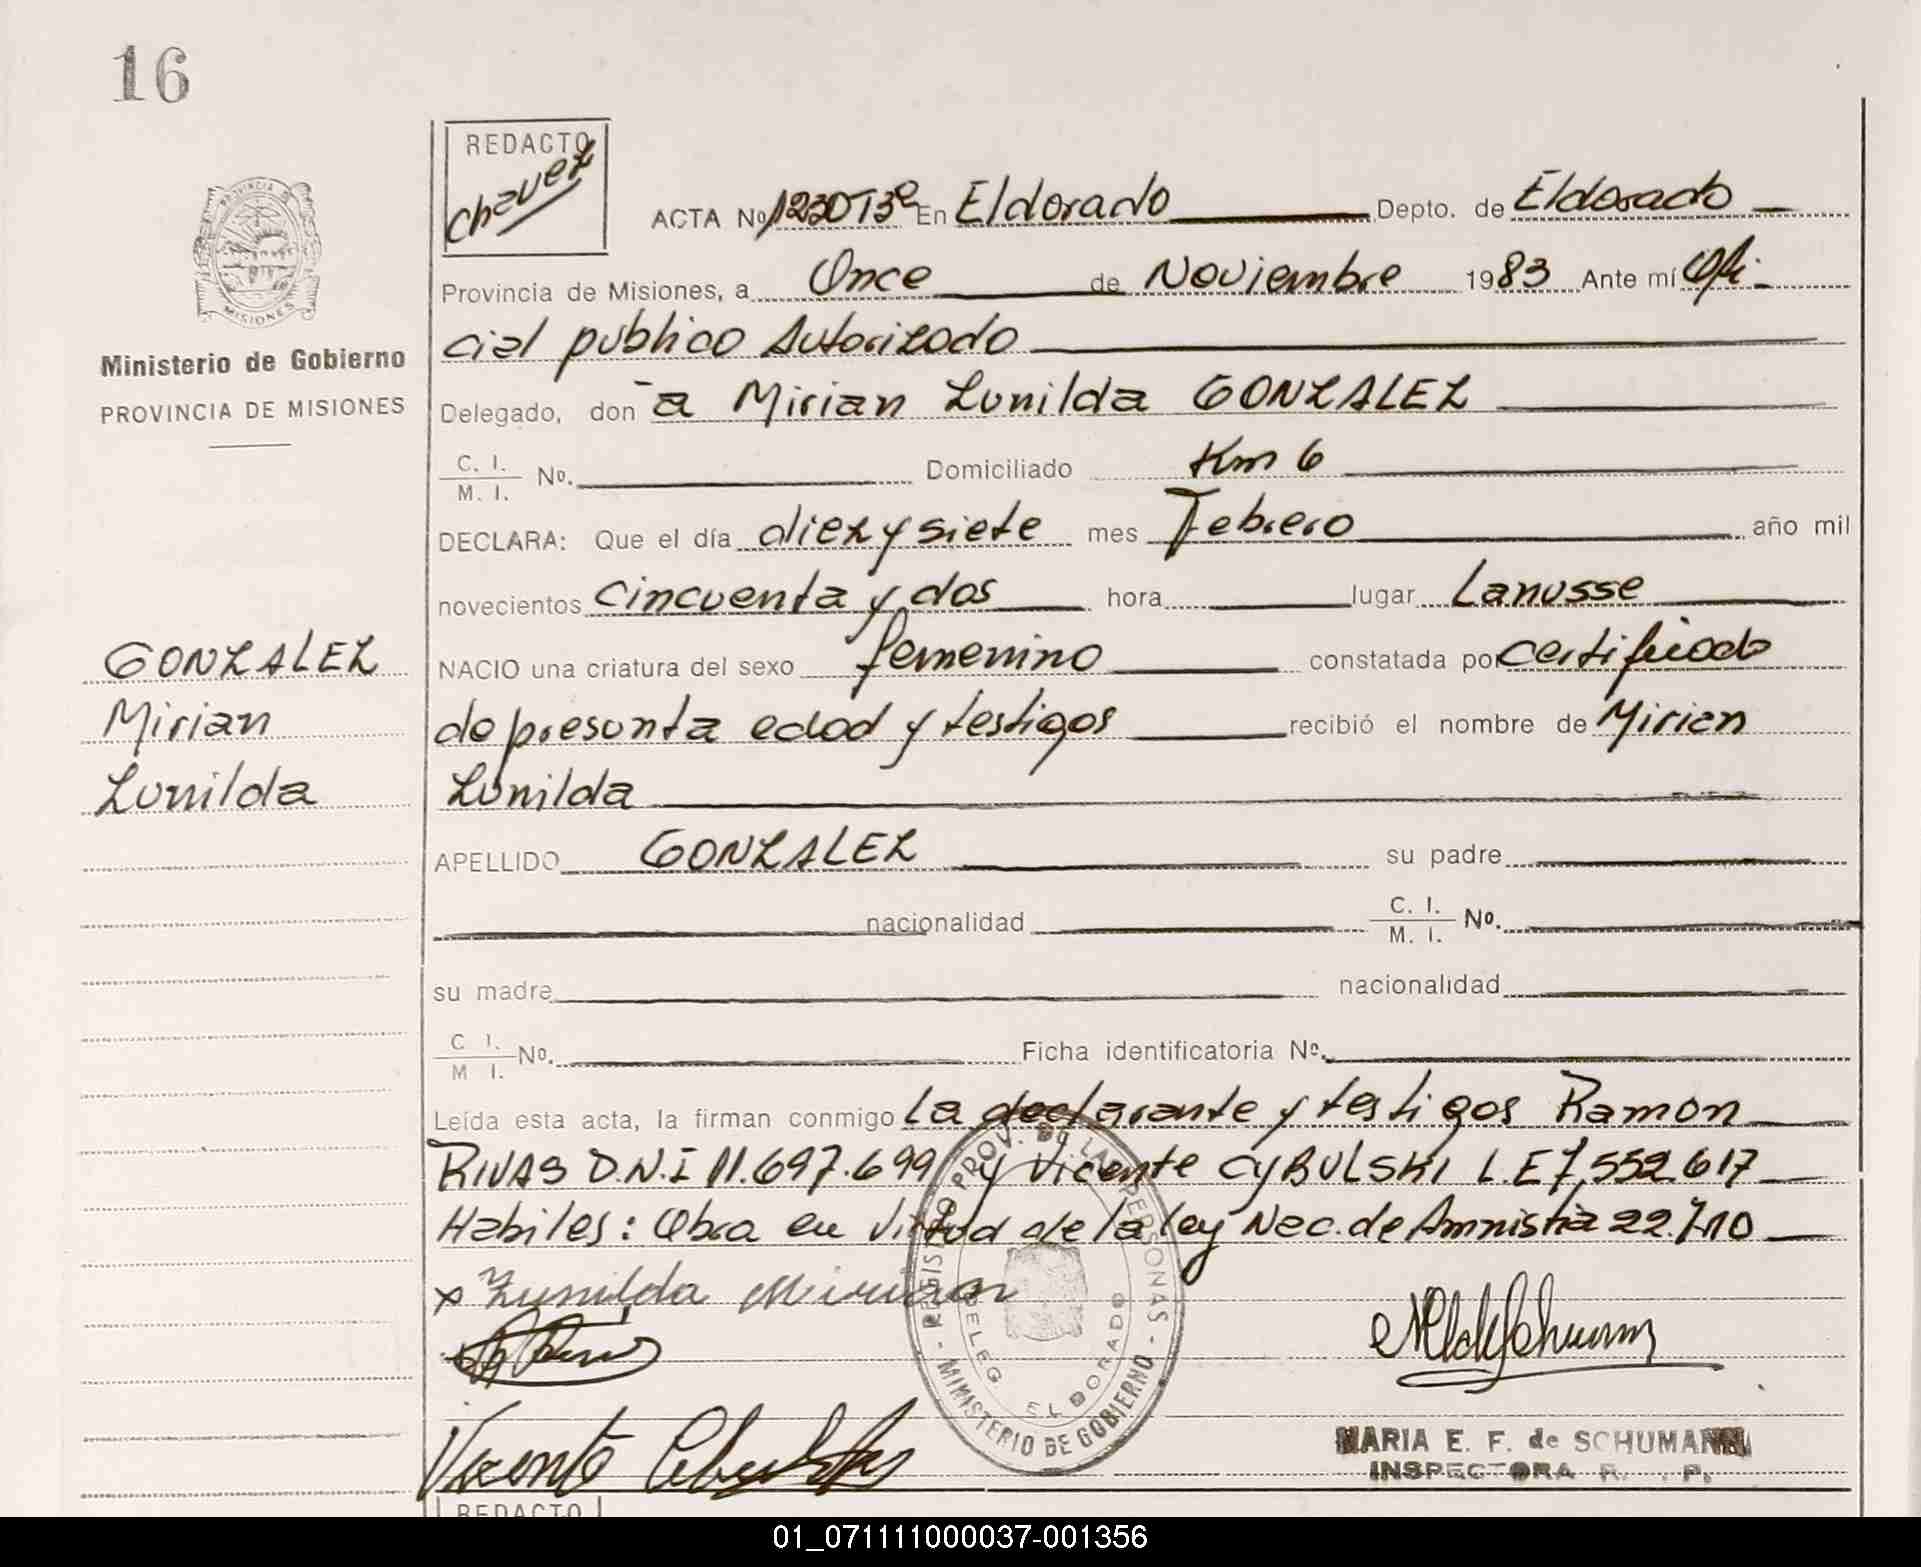 16
REDACTO
Chavez
PROVINCIA DE
MISIONES
Ministerio de Gobierno
PROVINCIA DE MISIONES
ACTA Nº 1230T3º En Eldorado Depto. de Eldorado
Provincia de Misiones, a Once de Noviembre 1983 Ante mí Ofi-
cial publico Autorizado
Delegado, don a Mirian Zunilda GONZALEZ
C. I.
M. I. Nº. Domiciliado Km 6
DECLARA: Que el día diez y siete mes Febrero año mil
novecientos cincuenta y dos hora lugar Lanusse
NACIO una criatura del sexo femenino constatada por certificado
de presunta edad y testigos recibió el nombre de Mirian
Zunilda
GONZALEZ
Mirian
Zunilda
APELLIDO GONZALEZ su padre
nacionalidad C. I.
M. I. Nº.
su madre nacionalidad
C I.
M I. Nº. Ficha identificatoria Nº.
Leída esta acta, la firman conmigo la declarante y testigos Ramon
RIVAS D.N.I 11.697.699 y Vicente CYBULSKI L.E 7,552.617
Habiles: Obra en virtud de la ley Nac. de Amnistia 22.710
x Zunilda Mirian
Vicente
REGISTRO PROV. DE LAS PERSONAS - MINISTERIO DE GOBIERNO -
DELEG. ELDORADO
MARIA E. F. de SCHUMANN
INSPECTORA R. P.
REDACTO
01_071111000037-001356